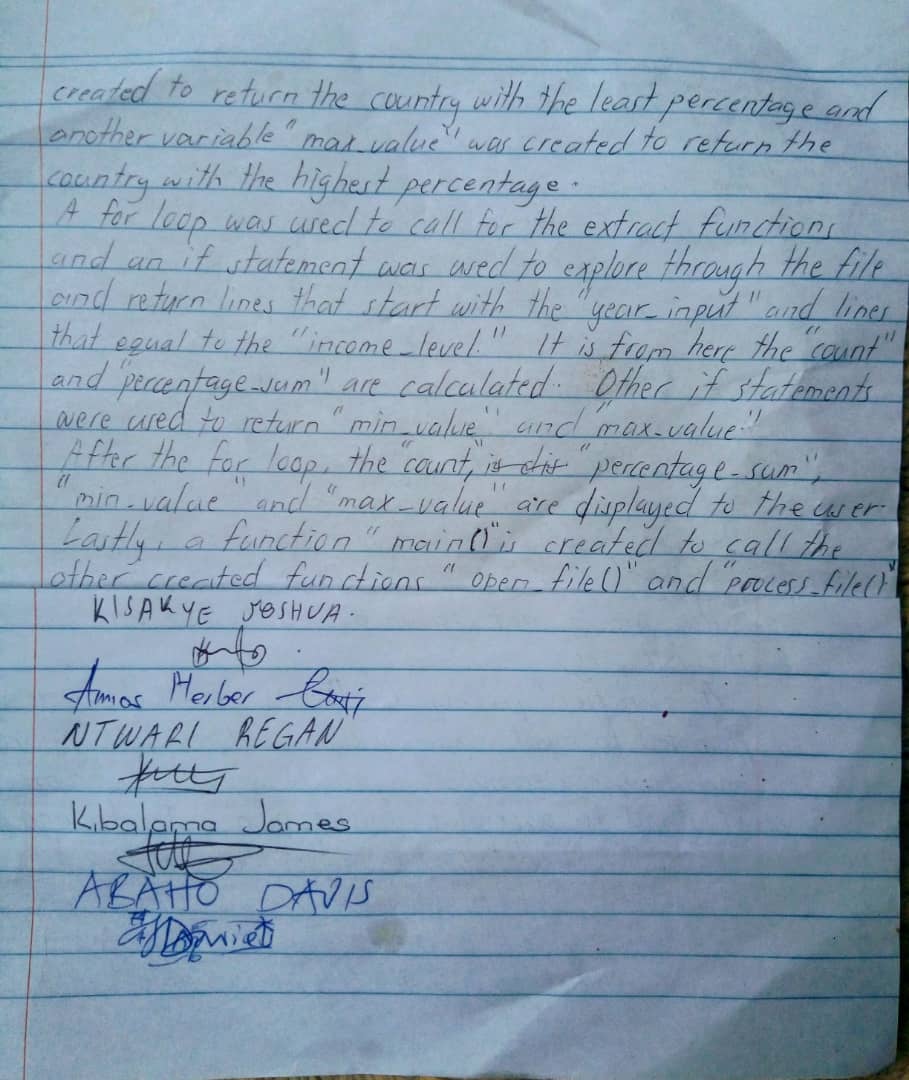 created to return the country with the least percentage and
another variable "max_value" was created to return the
country with the highest percentage.
A for loop was used to call for the extract functions
and an if statement was used to explore through the file
and return lines that start with the "year_input" and lines
that equal to the "income_level." It is from here the "count"
and "percentage_sum" are calculated. Other if statements
were used to return "min_value" and "max_value".
After the for loop, the "count," "percentage_sum",
"min_value" and "max_value" are displayed to the user.
Lastly, a function "main()" is created to call the
other created functions "open_file()" and "process_file()"
KISAKYE JOSHUA.
Amos Herber
NTWARI REGAN
Kibalama James
ABAHO DAVIS